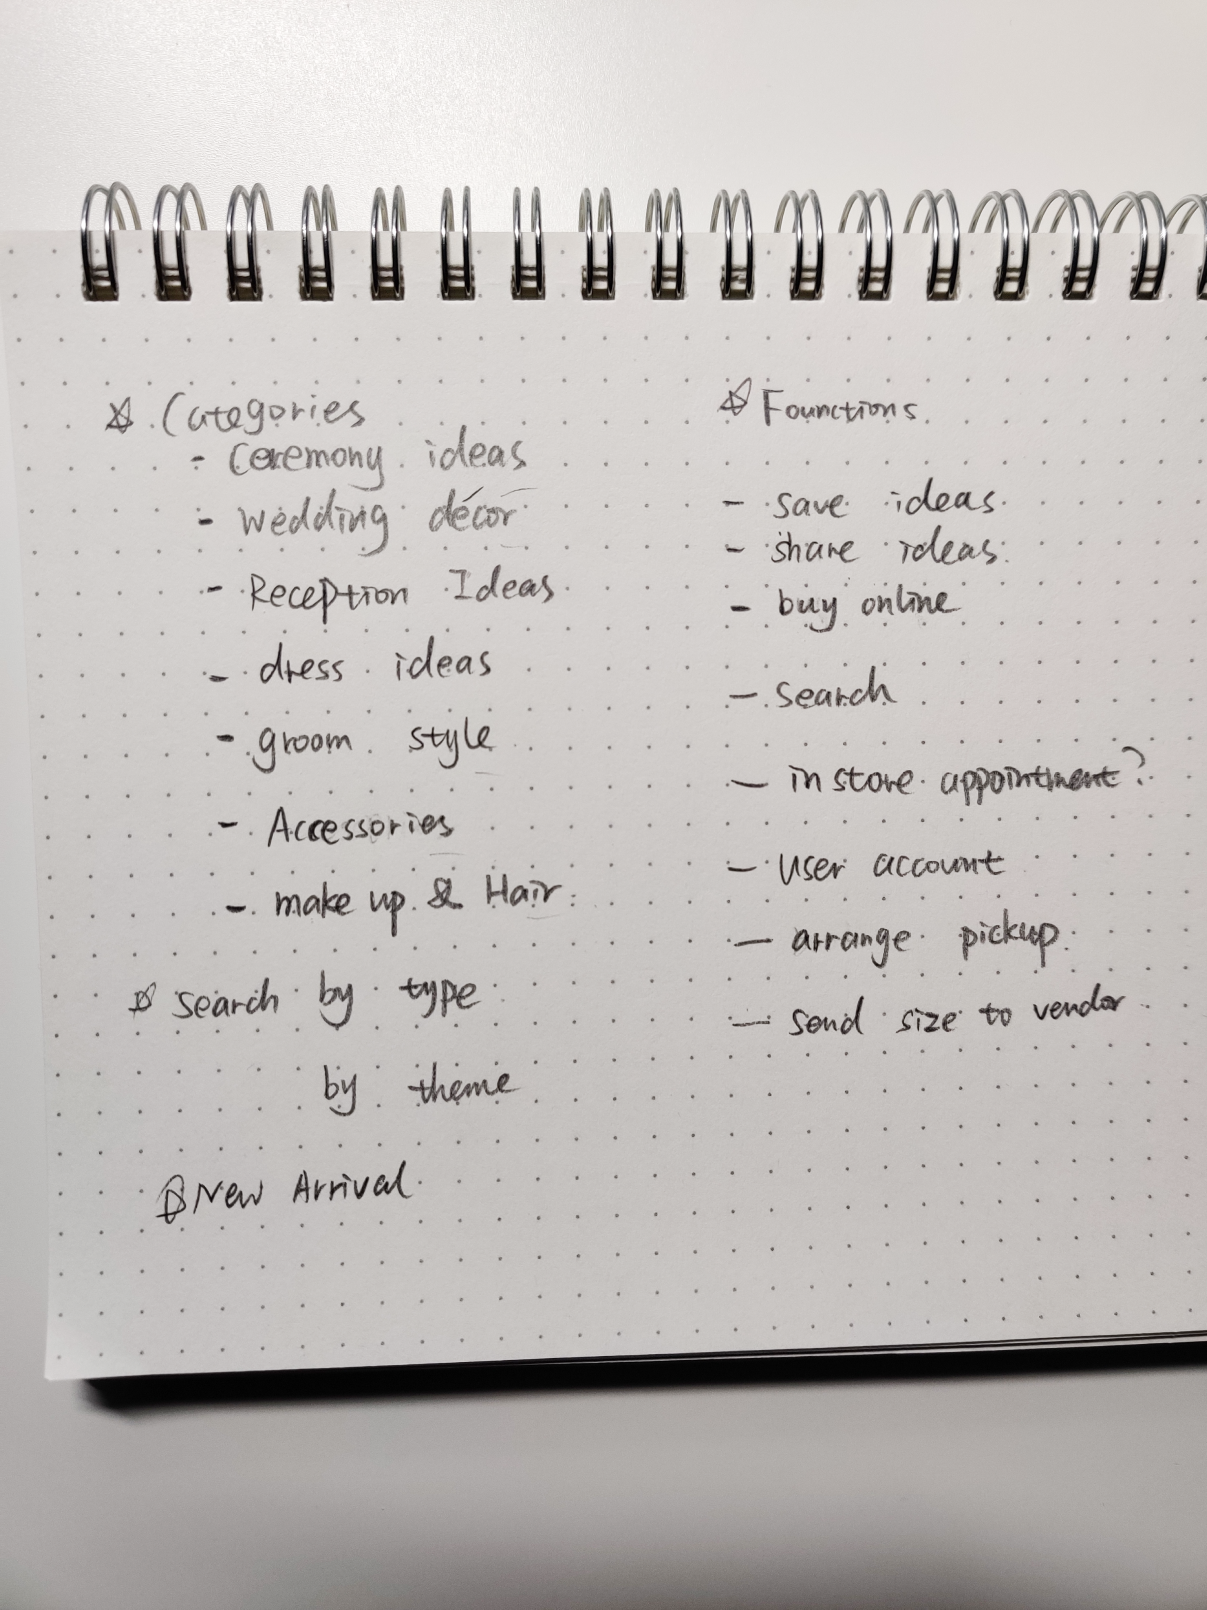 ☆ Categories
- Ceremony ideas
- wedding décor
- Reception Ideas
- dress ideas
- groom style
- Accessories
- make up & Hair
☆ search by type
by theme
☆ New Arrival
☆ Founctions
- save ideas
- share ideas
- buy online
- search
- in store appointment?
- user account
- arrange pickup
- send size to vendor